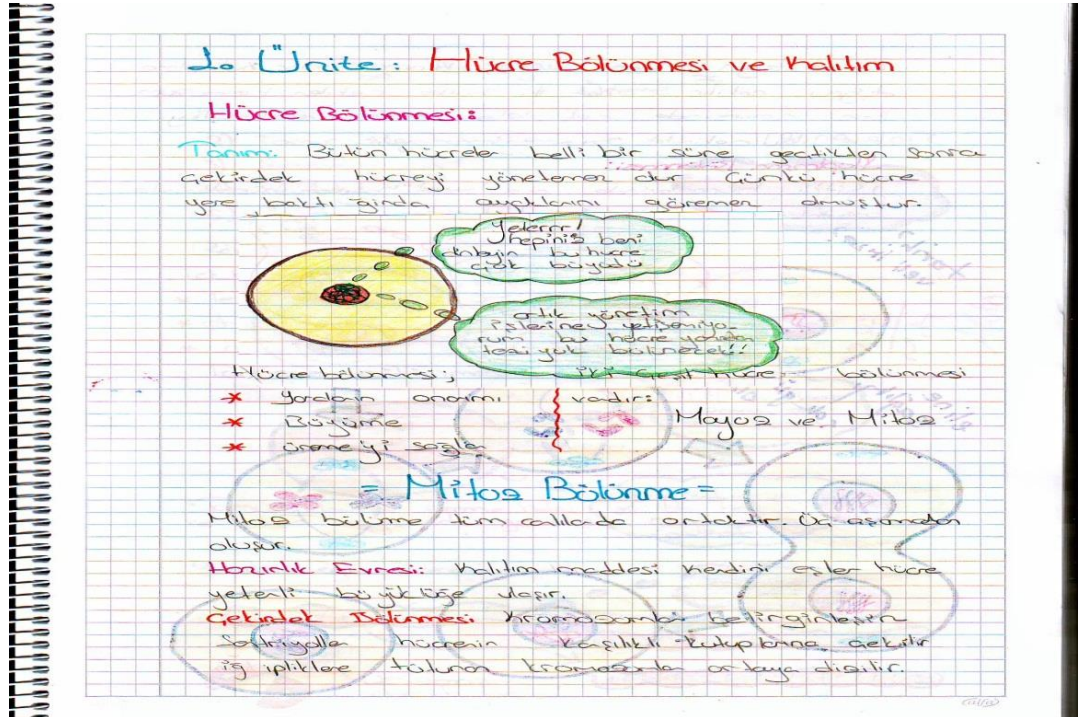 1. Ünite: Hücre Bölünmesi ve Kalıtım
Hücre Bölünmesi:
Tanım: Bütün hücreler belli bir süre geçtikten sonra
çekirdek hücreyi yönetemez dur Çünkü hücre
yere baktığında ayaklarını göremez olmuştur.
Yeterrr!
hepiniz beni
dinleyin bu hücre
çok büyüdü
artık yönetim
işlerine yetişemiyo-
rum bu hücre
yok bölünecek!!
Hücre bölünmesi;
* Yaraların onarımı
* Büyüme
* üreme'yi sağlar
iki çeşit hücre bölünmesi
vardır:
Mayoz ve Mitoz
= Mitoz Bölünme =
Mitoz bölüme tüm canlılarda ortaktır. Üç aşamadan
oluşur.
Hazırlık Evresi: Kalıtım maddesi kendini eşler hücre
yeterli büyüklüğe ulaşır.
Çekirdek Bölünmesi Kromozomlar belirginleşir
hücrenin karşılıklı kutuplarına çekilir
iğ ipliklere tutunan kromozomlar ortaya dizilir.